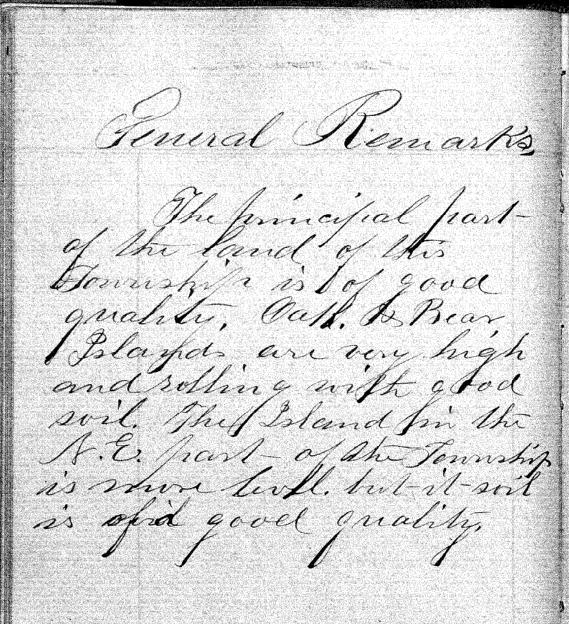 General Remarks,
The principal part
of the land of this
Township is of good
quality. Oak. & Bear
Islands are very high
and rolling with good
soil. The Island in the
N.E. part of the Township
is more level. but it soil
is of good quality.